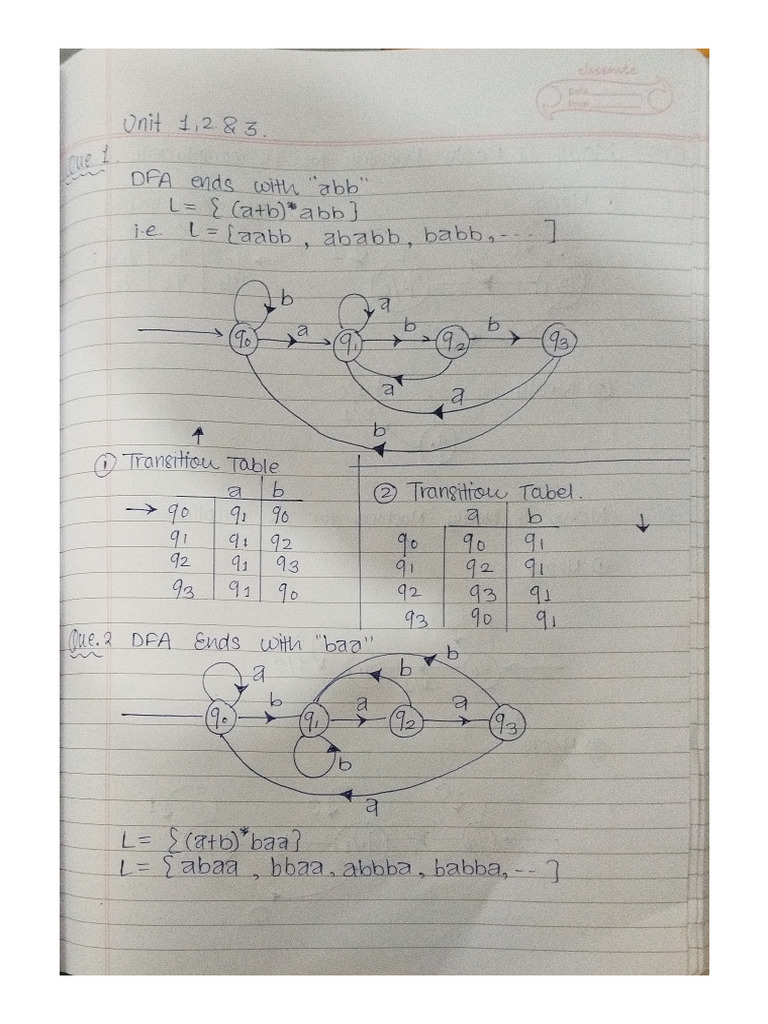 classmate
Date
Page
Unit 1,2 & 3.
Que 1.
DFA ends with "abb"
L = { (a+b)*abb}
i.e. L = {aabb , ababb, babb, --- ]
b
a
a
b
b
q0
q1
q2
q3
a
a
b
① Transition Table
a b
q0 q1 q0
q1 q1 q2
q2 q1 q3
q3 q1 q0
② Transition Tabel.
a b
q0 q0 q1
q1 q2 q1
q2 q3 q1
q3 q0 q1
Que. 2 DFA Ends with "baa"
b
b
a
b
a
a
q0
q1
q2
q3
b
a
L = {(a+b)*baa}
L = { abaa , bbaa, abbba, babba, -- }